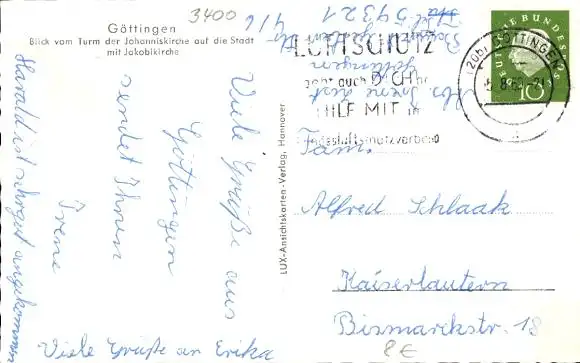 3400
Göttingen
Blick vom Turm der Johanniskirche auf die Stadt
mit Jakobikirche
Viele Grüße aus
Göttingen
sendet Ihnen
Irene
Harald ist sehr gut angekommen
Viele Grüße an Erika
LUX-Ansichtskarten-Verlag, Hannover
Abs. Irene
Göttingen
LUFTSCHUTZ
geht auch DICH an
HILF MIT im
Bundesluftschutzverband
(20b) GÖTTINGEN
DEUTSCHE BUNDESPOST
10
Fam.
Alfred Schlaak
Kaiserlautern
Bismarckstr. 18
8€